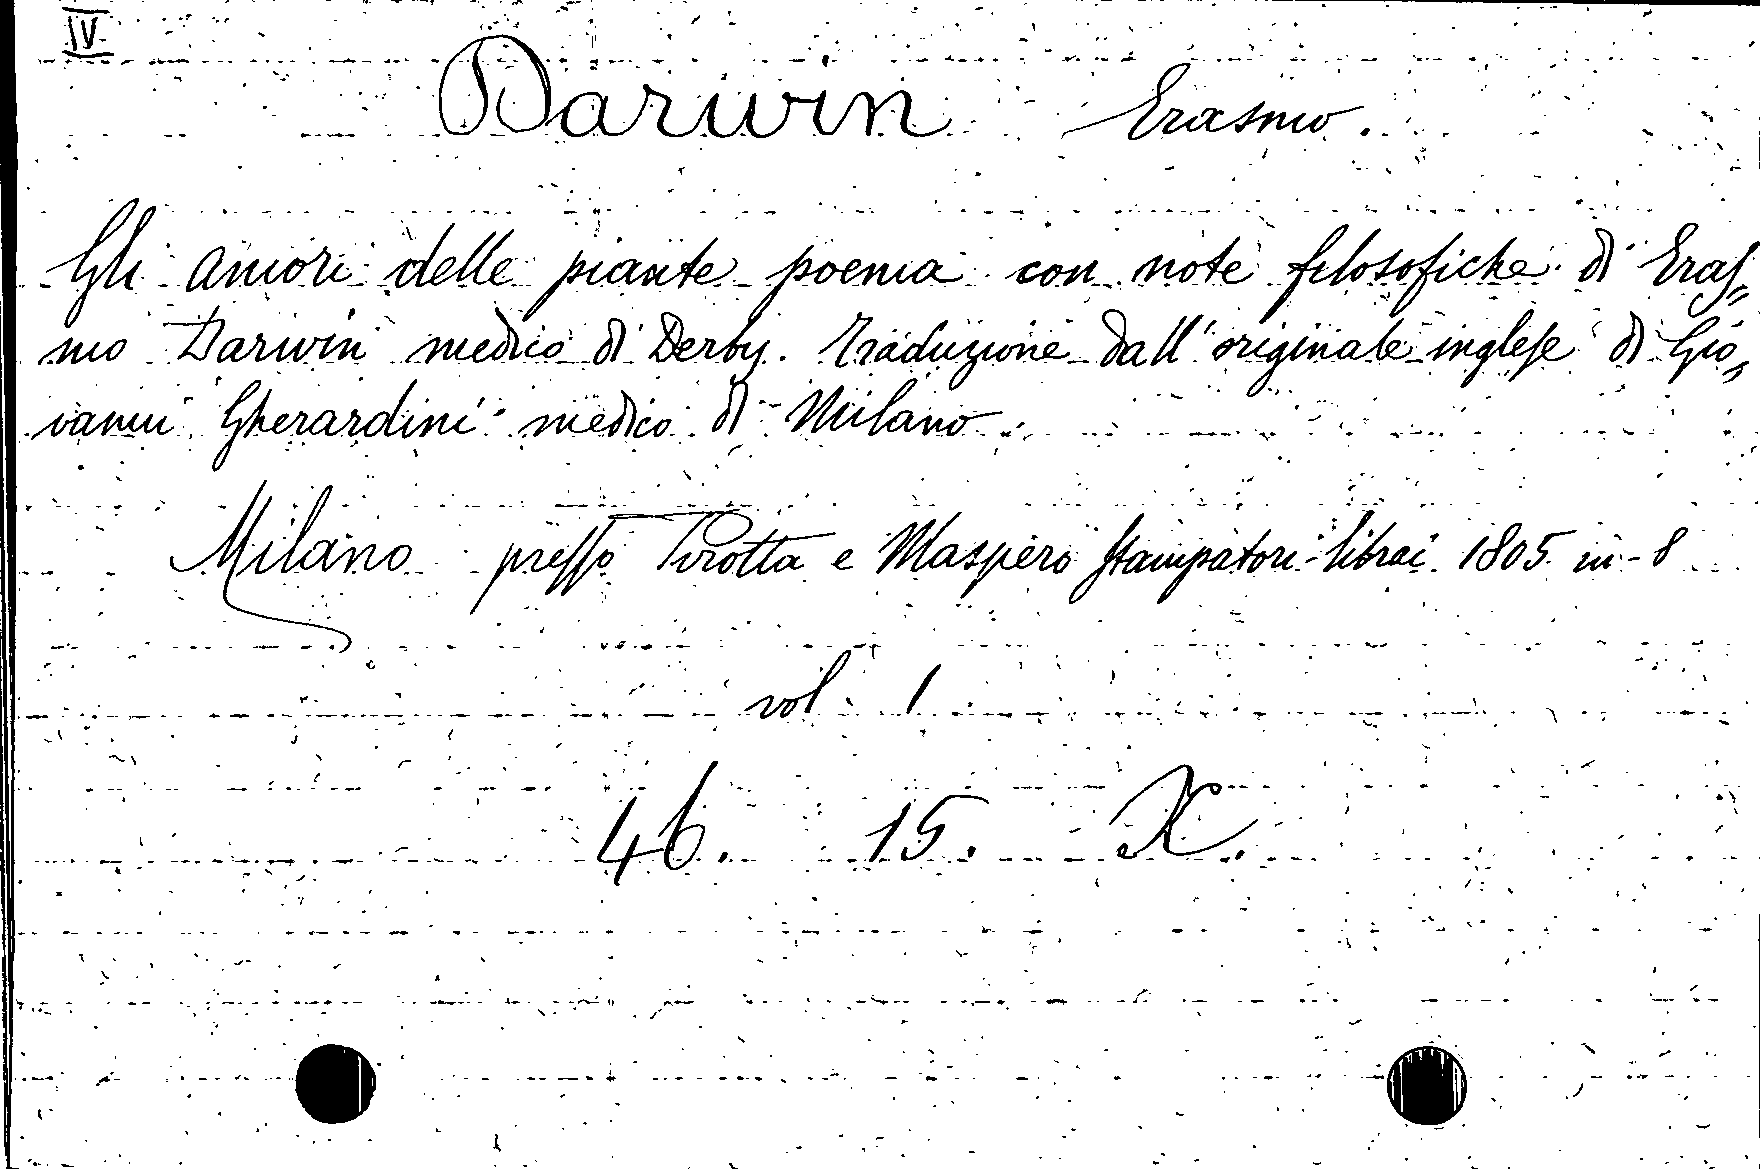 IV
Darwin Erasmo.
Gli amori delle piante poema con note filosofiche di Eras,,
mo Darwin medico di Derby. Traduzione dall'originale inglese di Gio,,
vanni Gherardini medico di Milano
Milano presso Pirotta e Maspero Stampatori-librai 1805 in-8
vol 1
46. 15. X.